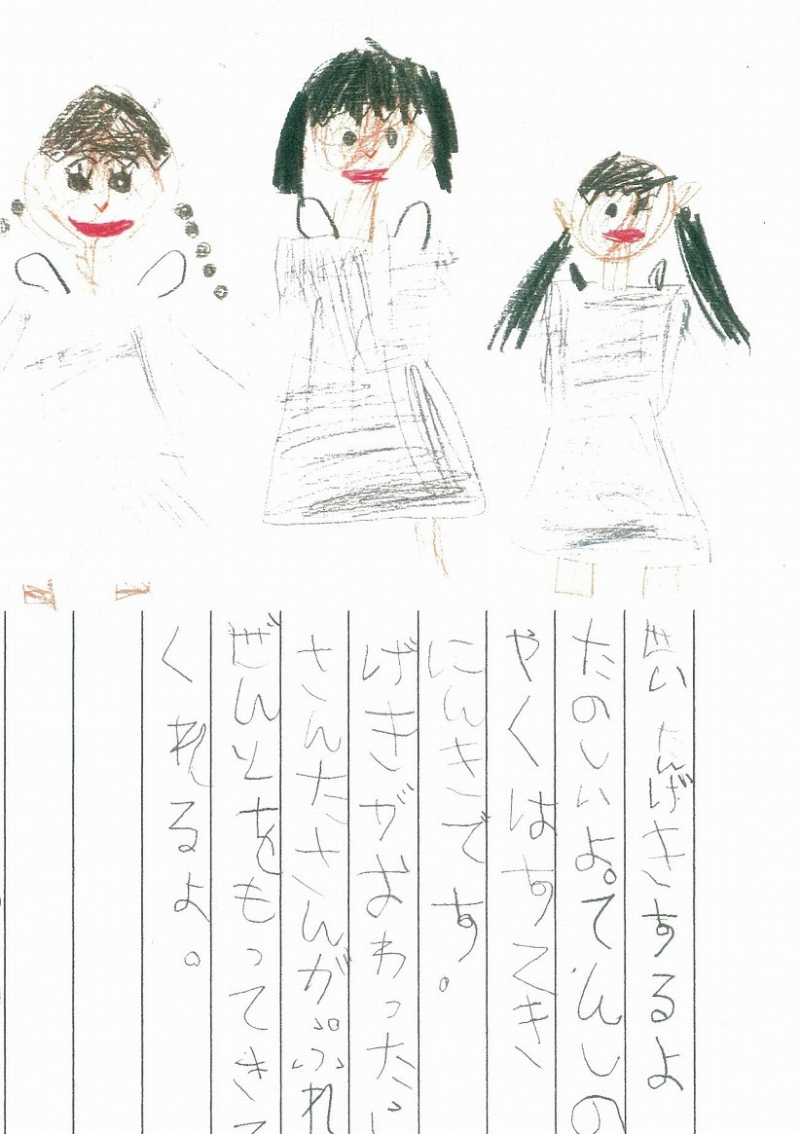 せいたんげきするよ
たのしいよ。てんしの
やくはすてき
にんきです。
げきがおわったら
さんたさんがぷれ
ぜんとをもってきて
くれるよ。